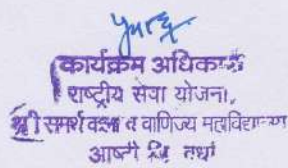 कार्यक्रम अधिकारी
राष्ट्रीय सेवा योजना,
श्री समर्थ कला व वाणिज्य महाविद्यालय
आष्टी जि. वर्धा